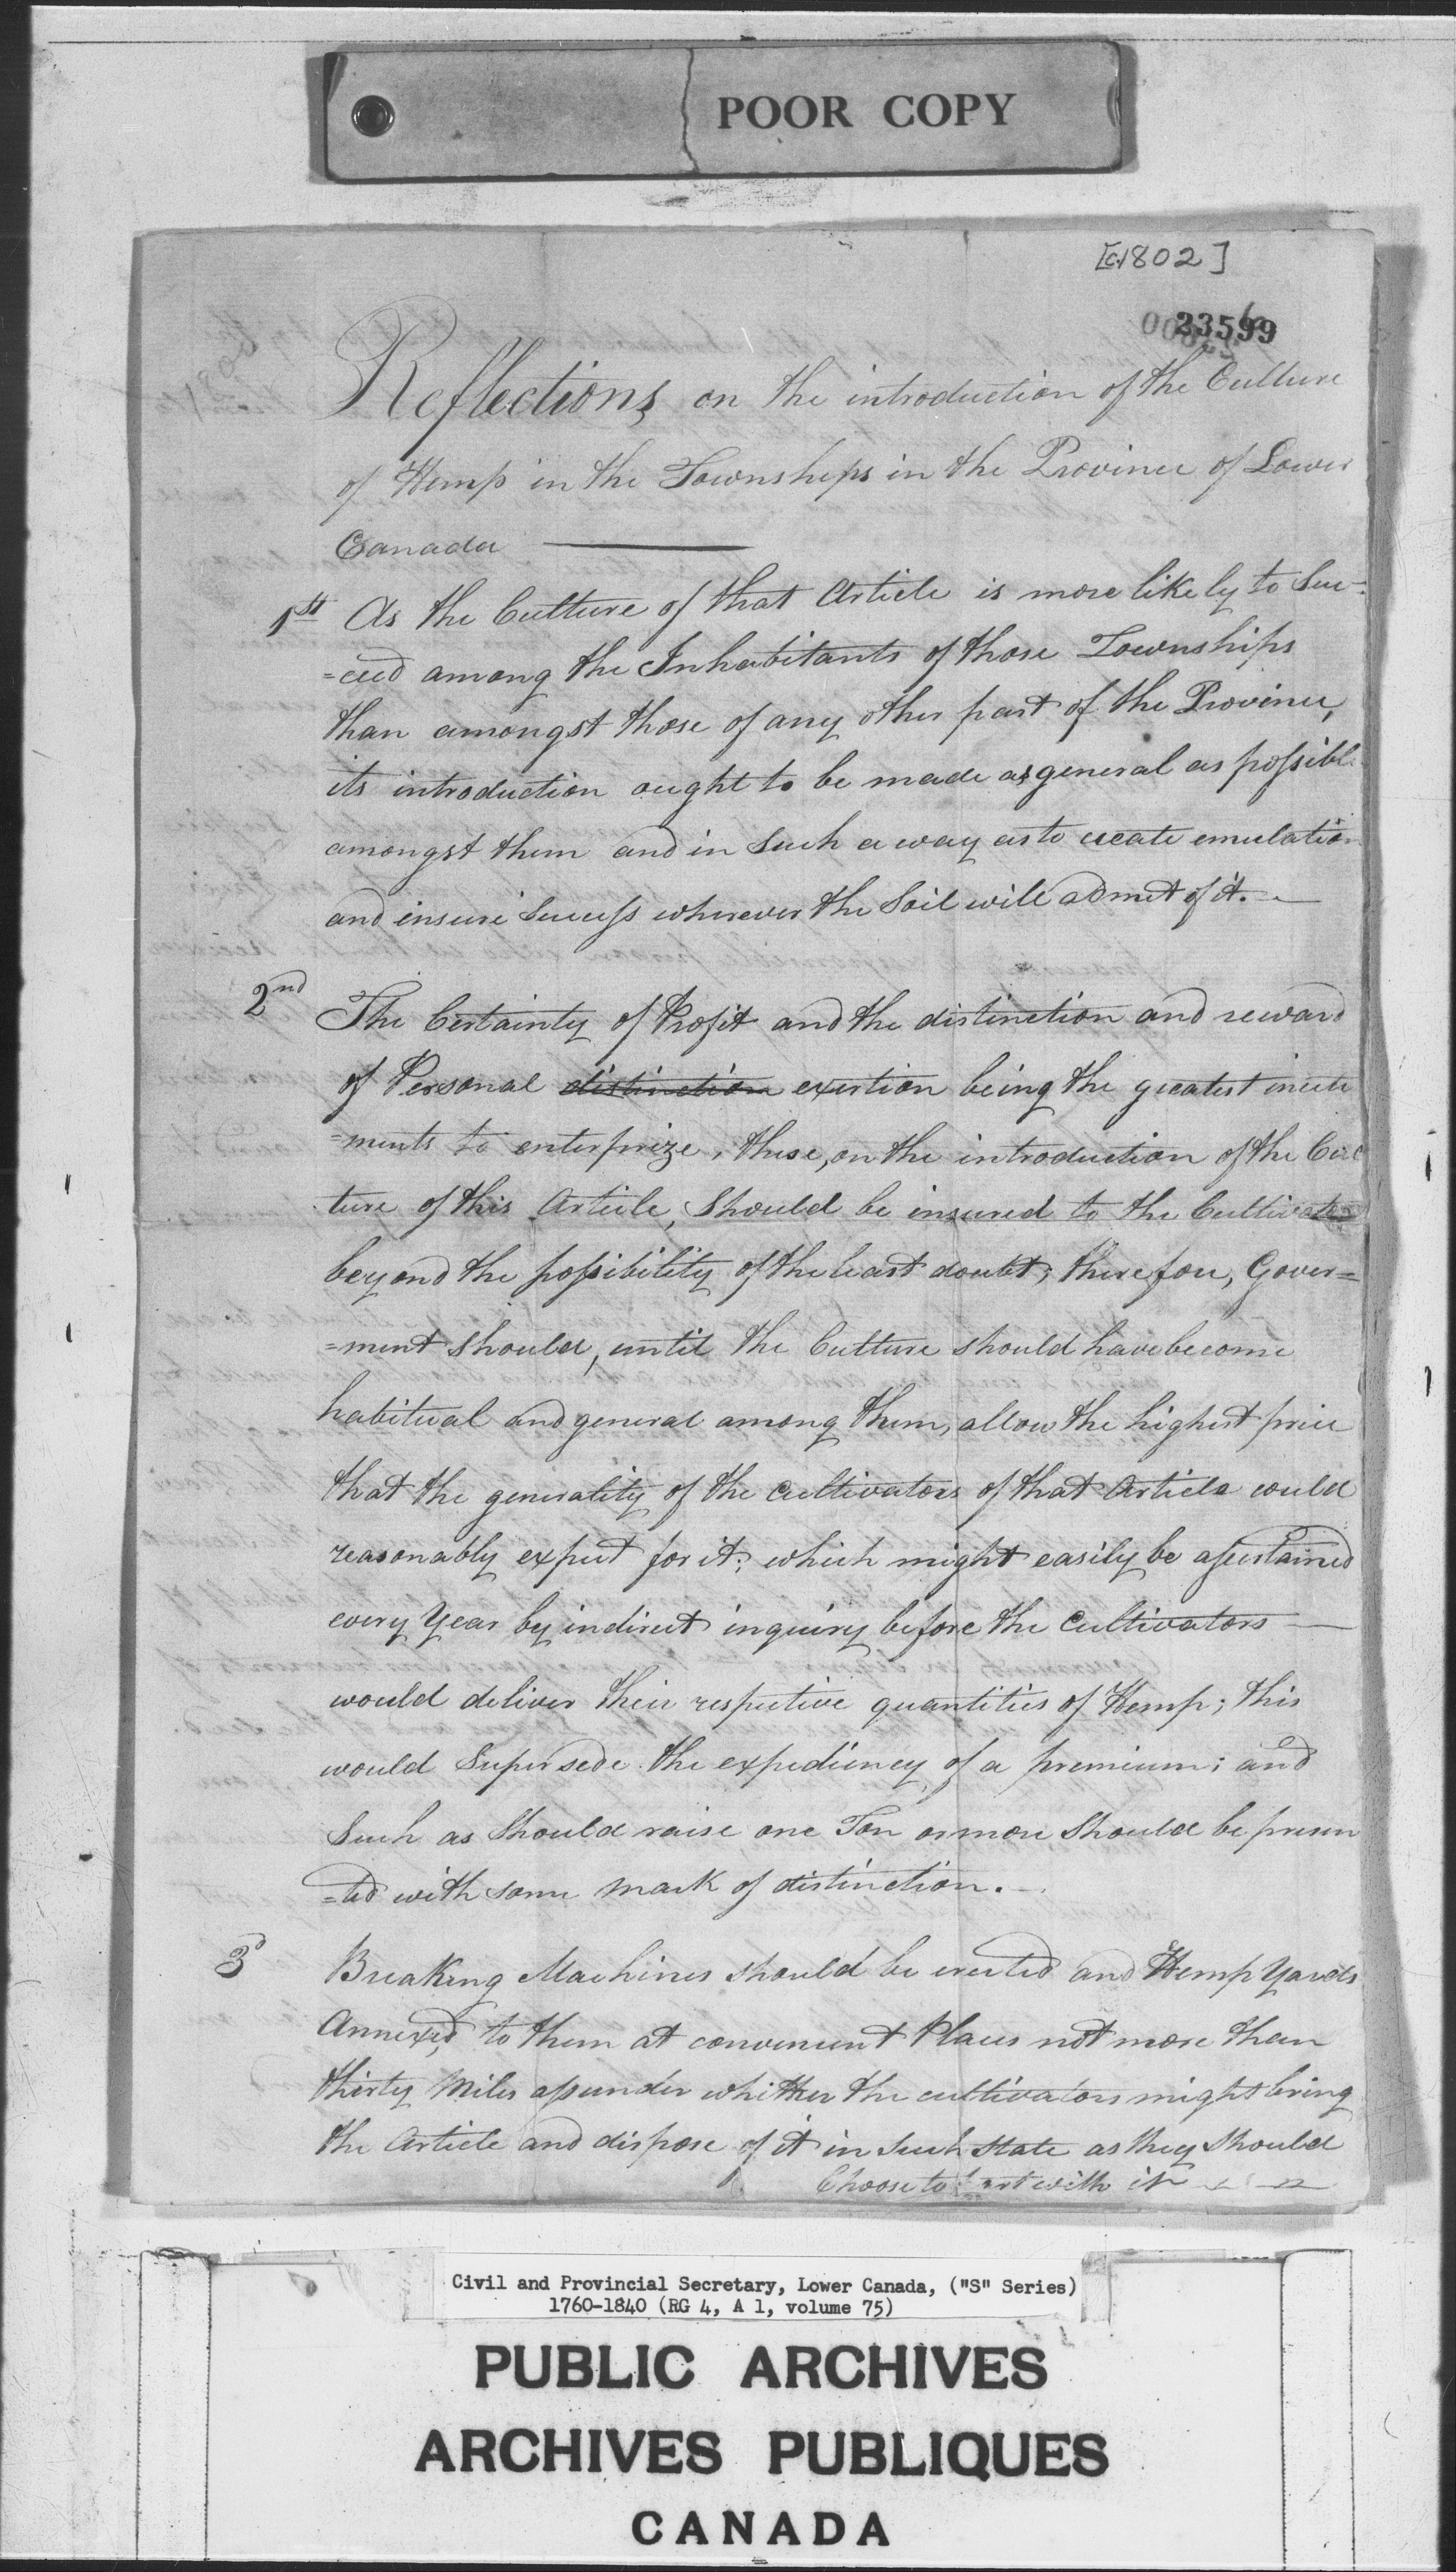 POOR COPY
[c1802]
23599
Reflections on the introduction of the Culture
of Hemp in the Townships in the Province of Lower
Canada
1st As the Culture of that Article is more likely to Suc=
=ceed among the Inhabitants of those Townships
than amongst those of any other part of the Province,
its introduction ought to be made as general as possible
amongst them and in Such a way as to create emulation
and insure Success wherever the Soil will admit of it.
2nd The Certainty of Profit and the distinction and reward
of Personal distinction exertion being the greatest incite
=ments to enterprize, these, on the introduction of the Cul
ture of this Article, Should be insured to the Cultivator
beyond the possibility of the least doubt; therefore, Gover=
=ment should, until the Culture should have become
habitual and general among them, allow the highest price
that the generality of the Cultivators of that Article could
reasonably expect for it; which might easily be assertained
every Year by indirect inquiry before the Cultivators
would deliver their respective quantities of Hemp; this
would Supersede the expediency of a premium; and
Such as Should raise one Ton or more Should be presen
=ted with some mark of distinction.
3d Breaking Machines should be erected and Hemp Yards
Annexed, to them at convenient Places not more than
thirty Miles assunder whither the cultivators might bring
the Article and dispose of it in Such State as they Should
Choose to part with it
Civil and Provincial Secretary, Lower Canada, ("S" Series)
1760-1840 (RG 4, A 1, volume 75)
PUBLIC ARCHIVES
ARCHIVES PUBLIQUES
CANADA